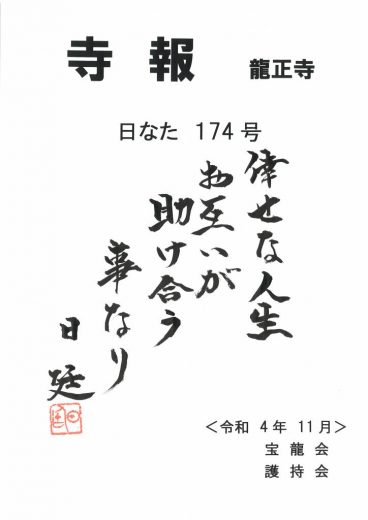 寺報 龍正寺
日なた 174号
倖せな人生
お互いが
助け合う
華なり
日廷
<令和 4年 11月>
宝龍会
護持会